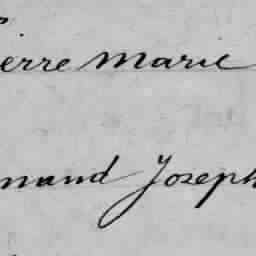 ierre Marie
nand Joseph